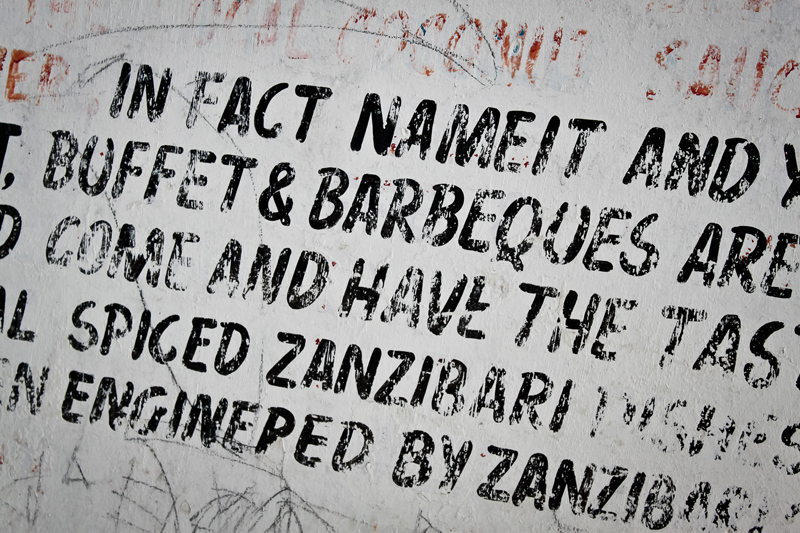 COCONUT
IN FACT NAMEIT AND Y
T, BUFFET & BARBEQUES ARE
D COME AND HAVE THE TAST
AL SPICED ZANZIBARI DISHES
EN ENGINEPED BY ZANZIBARI